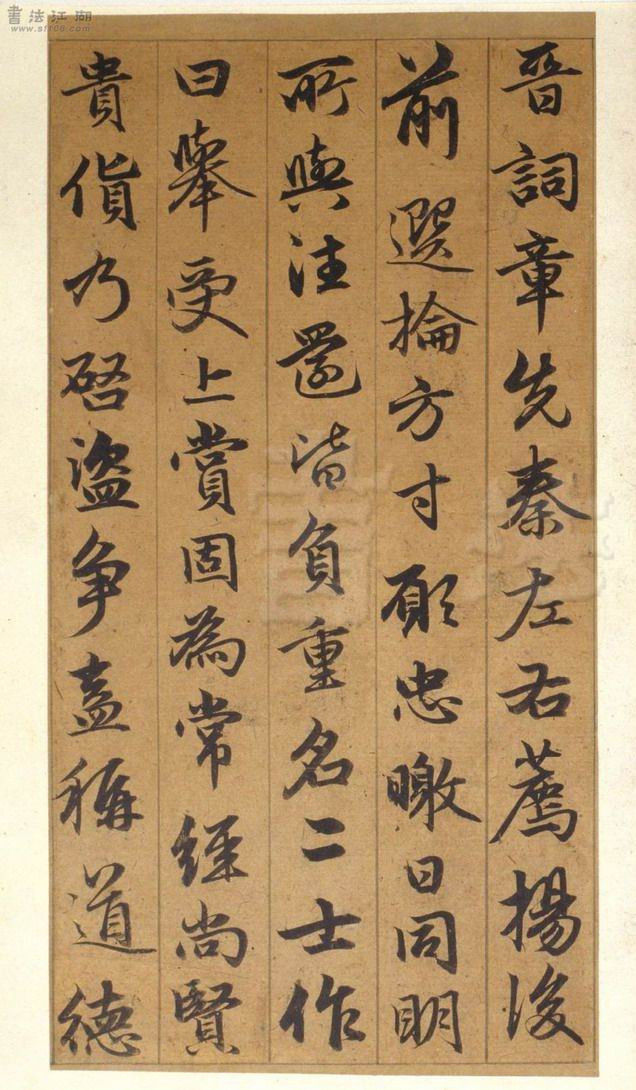 書法江湖
www.sf108.com
晉詞章先秦左右薦揚後
前選掄方寸願忠暾日同明
所與注還皆負重名二士作
曰舉受上賞固為常經尚賢
貴貨乃啓盜爭盍稱道德